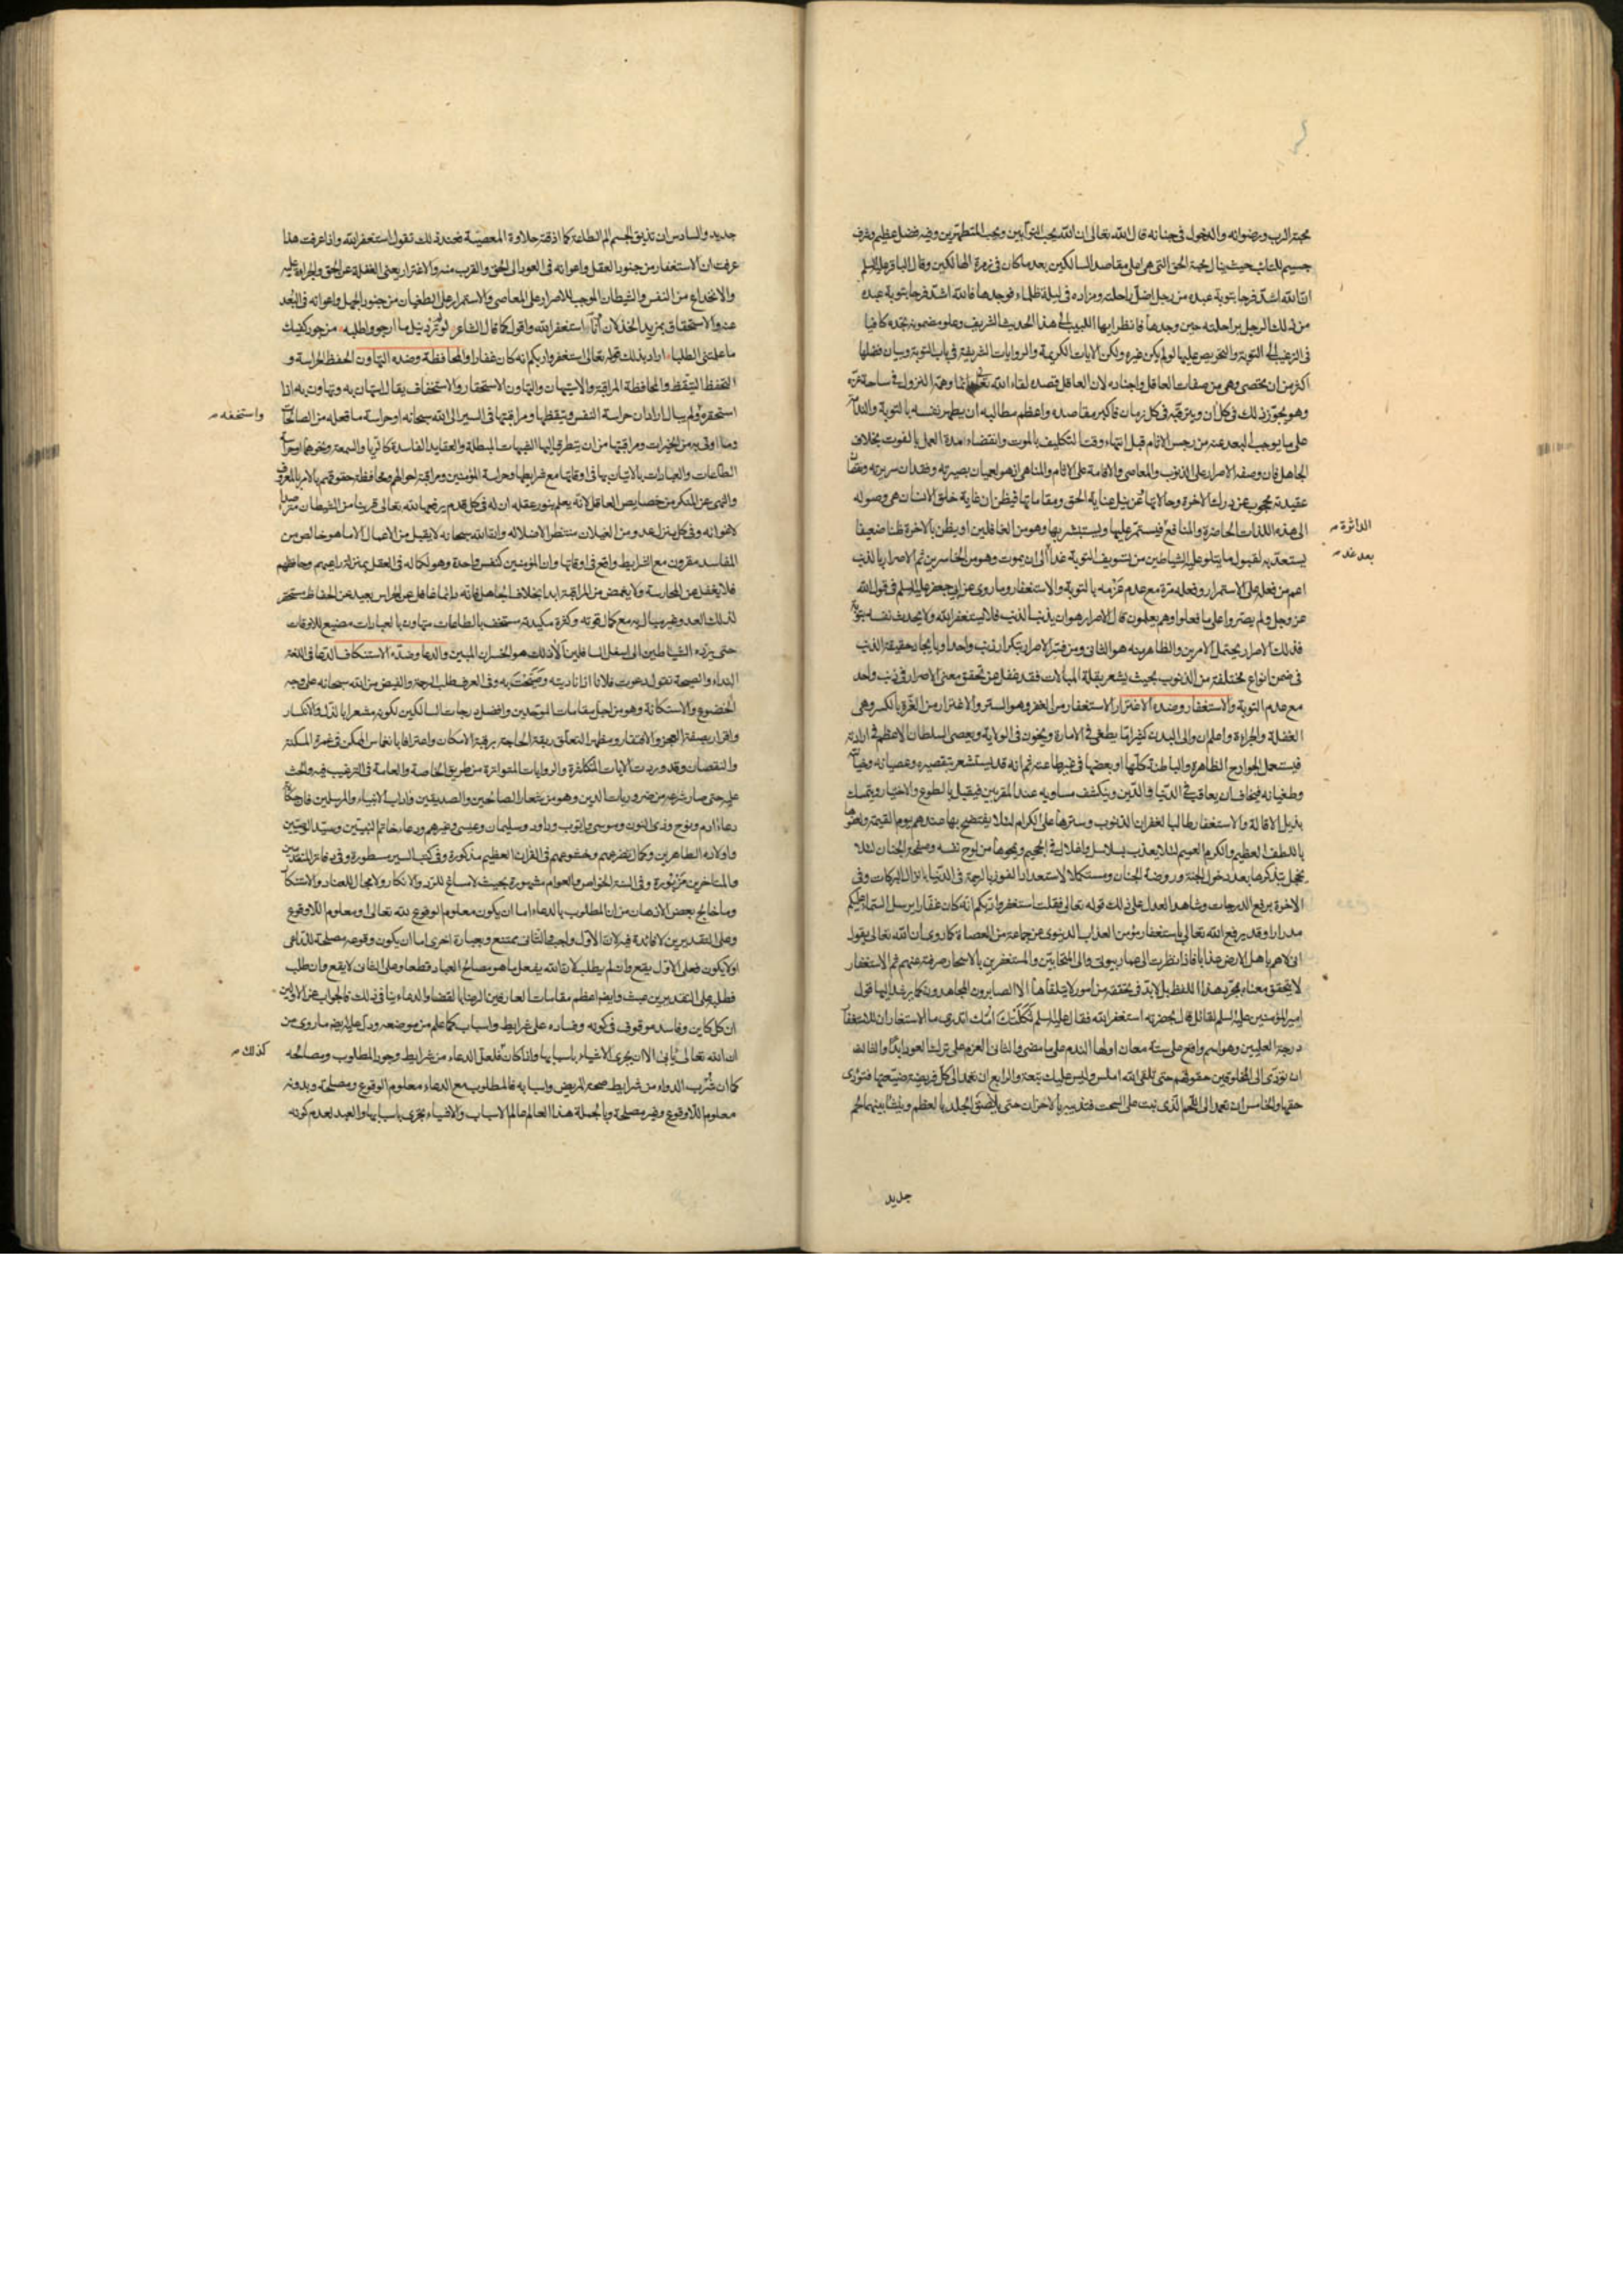 محبة الرب ورضوانه والدخول فى جنانه قال الله تعالى ان الله يحب التوابين ويحب المتطهرين وفيه فضل عظيم وشرف
جسيم للتائب حيث ينال محبة الحق التى هى اعلى مقاصد السالكين بعد ما كان فى زمرة الهالكين وقال الباقر عليه السلم
ان الله اشد فرحا بتوبة عبده من رجل اضل راحلته ومزاده فى ليلة ظلماء فوجدها فالله اشد فرحا بتوبة عبده
من ذلك الرجل براحلته حين وجدها فانظر ايها اللبيب الى هذا الحديث الشريف وعلو مضمونه تجده كافيا
فى الترغيب الى التوبة والتحريص عليها لو لم يكن غيره ولكن الايات الكريمة والروايات الشريفة فى باب التوبة وبيان فضلها
اكثر من ان يحصى وهى من صفات العاقل واجناده لان العاقل قصده لقاء الله تعالى دائما وهمه النزول فى ساحة عزه
وهو يجوز ذلك فى كل ان ويترقبه فى كل زمان فاكبر مقاصده واعظم مطالبه ان يطهر نفسه بالتوبة والندامة
على ما يوجب البعد عنه من رجس الاثام قبل انتهاء وقت التكليف بالموت وانقضاء مدة العمل بالفوت بخلاف
الجاهل فان وصفه الاصرار على الذنوب والمعاصى والاقامة على الاثام والمناهى اذ هو لعميان بصيرته وفقدان سريرته ونقصان
عقيدته محجوب عن درك الاخرة وحالاتها عن نيل عناية الحق ومقاماتها فيظن ان غاية خلق الانسان هى وصوله
الى هذه اللذات الحاضرة والمنافع فيستمر عليها ويستبشر بها وهو من الغافلين او يظن بالاخرة ظنا ضعيفا
الداثرة
يستعد به لقبول ما يتلو عليه الشياطين من تسويف التوبة غدا الى ان يموت وهو من الخاسرين ثم الاصرار بالذنب
بعد غد
اعم من فعله على الاستمرار وفعله مرة مع عدم عزمه بالتوبة والاستغفار وما روى عن ابى جعفر عليه السلم فى قول الله
عز وجل ولم يصروا على ما فعلوا وهم يعلمون قال الاصرار هو ان يذنب الذنب فلا يستغفر الله ولا يحدث نفسه بتوبة
فذلك الاصرار يحتمل الامرين والظاهر منه هو الثانى ومن فسر الاصرار بتكرار ذنب واحد او بايجاد حقيقة الذنب
فى ضمن انواع مختلفة من الذنوب بحيث يشعر بقلة المبالات فقد غفل عن تحقق معنى الاصرار فى ذنب واحد
مع عدم التوبة والاستغفار وضده الاغترار الاستغفار من الغفر وهو الستر والاغترار من الغرة بالكسر وهى
الغفلة والجراءة واعلم ان والى البدن كثيرا ما يطغى فى الامارة ويخون فى الولاية ويعصى السلطان الاعظم فى ارادته
فيستعمل الجوارح الظاهرة والباطنة كلها او بعضها فى غير طاعته ثم انه قد يستشعر بتقصيره وعصيانه وخيانته
وطغيانه فيخاف ان يعاقب فى الدنيا والدين وينكشف مساويه عند المقربين فيقبل بالطوع والاختيار ويتمسك
بذيل الاقالة والاستغفار طالبا لغفران الذنوب وسترها على الكرام لئلا يفتضح بها عندهم يوم القيمة
باللطف العظيم والكرم العميم لئلا يعذب بسلاسل واغلال فى الجحيم ويمحوها من لوح نفسه وصفحة الجنان لئلا
يخجل بتذكرها بعد دخول الجنة وروضة الجنان ومستكملا لاستعداد الفوز بالرحمة فى الدنيا بانزال البركات وفى
الاخرة برفع الدرجات وشاهد العدل على ذلك قوله تعالى فقلت استغفروا ربكم انه كان غفارا يرسل السماء عليكم
مدرارا وقد يرفع الله تعالى باستغفار مؤمن العذاب الدنيوى عن جماعة من العصاة كما روى ان الله تعالى يقول
انى لاهم باهل الارض عذابا فاذا نظرت الى عمار بيوتى والى المتحابين والمستغفرين بالاسحار صرفته عنهم ثم الاستغفار
لا يتحقق معناه بمجرد هذا اللفظ بل لابد فى تحققه من امور لا يتلقاها الا الصابرون المجاهدون
امير المؤمنين عليه السلم لقائل قال بحضرته استغفر الله فقال عليه السلم ثكلتك امك اتدرى ما الاستغفار ان للاستغفار
درجة العليين وهو اسم واقع على ستة معان اولها الندم على ما مضى والثانى العزم على ترك العود ابدا والثالث
ان تؤدى الى المخلوقين حقوقهم حتى تلقى الله املس وليس عليك تبعة والرابع ان تعمد الى كل فريضة ضيعتها فتؤدى
حقها والخامس ان تعمد الى اللحم الذى نبت على السحت فتذيبه بالاحزان حتى يلصق الجلد بالعظم وينشا بينهما لحم
جديد
جديد والسادس ان تذيق الجسم الم الطاعة كما اذقته حلاوة المعصية فعند ذلك تقول استغفر الله واذا عرفت هذا
عرفت ان الاستغفار من جنود العقل واعوانه فى العود الى الحق والقرب منه والاغترار يعنى الغفلة عن الحق والجراءة عليه
والانخداع من النفس والشيطان الموجب للاصرار على المعاصى والاستمرار على الطغيان من جنود الجهل واعوانه فى البعد
عنه والاستحقاق بمزيد الخذلان استغفر الله واقول كما قال الشاعر لو لم ترد نيل ما ارجو واطلبه من جود كفيك
ما علمتنى الطلبا اراد بذلك قوله تعالى استغفروا ربكم انه كان غفارا والمحافظة وضده التهاون الحفظ الحراسة و
التحفظ التيقظ والمحافظة المراقبة والتهاون الاستحقار والاستخفاف يقال استهان به وتهاون به اذا
استحقره ولم يبال اراد ان حراسة النفس وتيقظها ومراقبتها فى السير الى الله سبحانه او حراسة ما فعله من الصالحات
واستخفه
وما اوتى به من الخيرات ومراقبتها من ان يتطرق اليها الشبهات المبطلة والعقايد الفاسدة كالريا والسمعة ونحوها او حراسة
الطاعات والعبادات بالاتيان بها فى اوقاتها مع شرايطها وحراسة المؤمنين ومراقبة احوالهم ومحافظة حقوقهم بالامر بالمعروف
والنهى عن المنكر من خصايص العاقل لانه يعلم بنور عقله ان له فى كل قدم يرفعها لله تعالى قرينا من الشيطان
لاغوائه وفى كل منزل عدو من الغيلان منتظر لاضلاله وان الله سبحانه لا يقبل من الاعمال الا ما هو خالص من
المفاسد مقرون مع الشرايط واقع فى اوقاتها وان المؤمنين كنفس واحدة وهو لكماله فى العقل بمنزلة راعيهم وحافظهم
فلا يغفل عن الحارسة ولا يغمض من المراقبة ابدا بخلاف الجاهل فانه دائما غافل عن الحراس بعيد عن الحفاظ مستحقر
لذلك العدو غير مبال به مع كمال قوته وكثرة مكيدته مستخف بالطاعات متهاون بالعبادات مضيع للاوقات
حتى يرده الشياطين الى اسفل السافلين الا ذلك هو الخسران المبين والدعا وضده الاستنكاف الدعا فى اللغة
النداء والصيحة تقول دعوت فلانا اذا ناديته وصحت به وفى العرف طلب الرحمة والفيض من الله سبحانه على وجه
الخضوع والاستكانة وهو من اجل مقامات الموحدين وافضل درجات السالكين لكونه مشعرا بالذل والانكسار
واقرار بصفة العجز والافتقار ومظهر التعلق ربقة الحاجة برقبة الامكان واعترافا بانغماس الممكن فى غمرة المسكنة
والنقصان وقد وردت الايات المتكاثرة والروايات المتواترة من طريق الخاصة والعامة فى الترغيب فيه والحث
عليه حتى صار شرعه من ضروريات الدين وهو من شعار الصالحين والصديقين واداب الانبياء والمرسلين
دعاء ادم ونوح وذى النون وموسى وايوب وداود وسليمان وعيسى وغيرهم ودعاء خاتم النبيين وسيد الوصيين
واولاده الطاهرين وكمال تضرعهم وخشوعهم فى القران العظيم مذكورة وفى كتب السير مسطورة وفى دفاتر المتقدمين
والمتاخرين مزبورة وفى السنة الخواص والعوام مشهورة بحيث لا مساغ للرد والانكار ولا مجال للعناد والاستنكار
وما خالج بعض الاذهان من ان المطلوب بالدعاء اما ان يكون معلوم الوقوع لله تعالى او معلوم اللاوقوع
وعلى التقديرين لا فائدة فيه لان الاول واجب والثانى ممتنع وبعبارة اخرى اما ان يكون وقوعه مصلحة للداعى
او لا يكون فعلى الاول يقع وان لم يطلب لان الله يفعل ما هو مصالح العباد قطعا وعلى الثانى لا يقع وان طلب
فطلبه على التقديرين عبث وايضا اعظم مقامات العارفين الرضا بالقضا والدعاء ينافى ذلك فالجواب عن الاولين
ان كل كاين وفاسد موقوف فى كونه وفساده على شرايط واسباب كما علم من موضعه ودل عليه ايضا ما روى من
ان الله تعالى يابى الا ان يجرى الاشياء باسبابها واذا كان فلعل الدعاء من شرايط وجود المطلوب ومصالحه
كذلك
كما ان شرب الدواء من شرايط صحة المريض واسبابه فالمطلوب مع الدعاء معلوم الوقوع ومصلحة وبدونه
معلوم اللاوقوع وغير مصلحة وبالجملة هذا العالم عالم الاسباب والاشياء تجرى باسبابها والعبد لعدم كونه